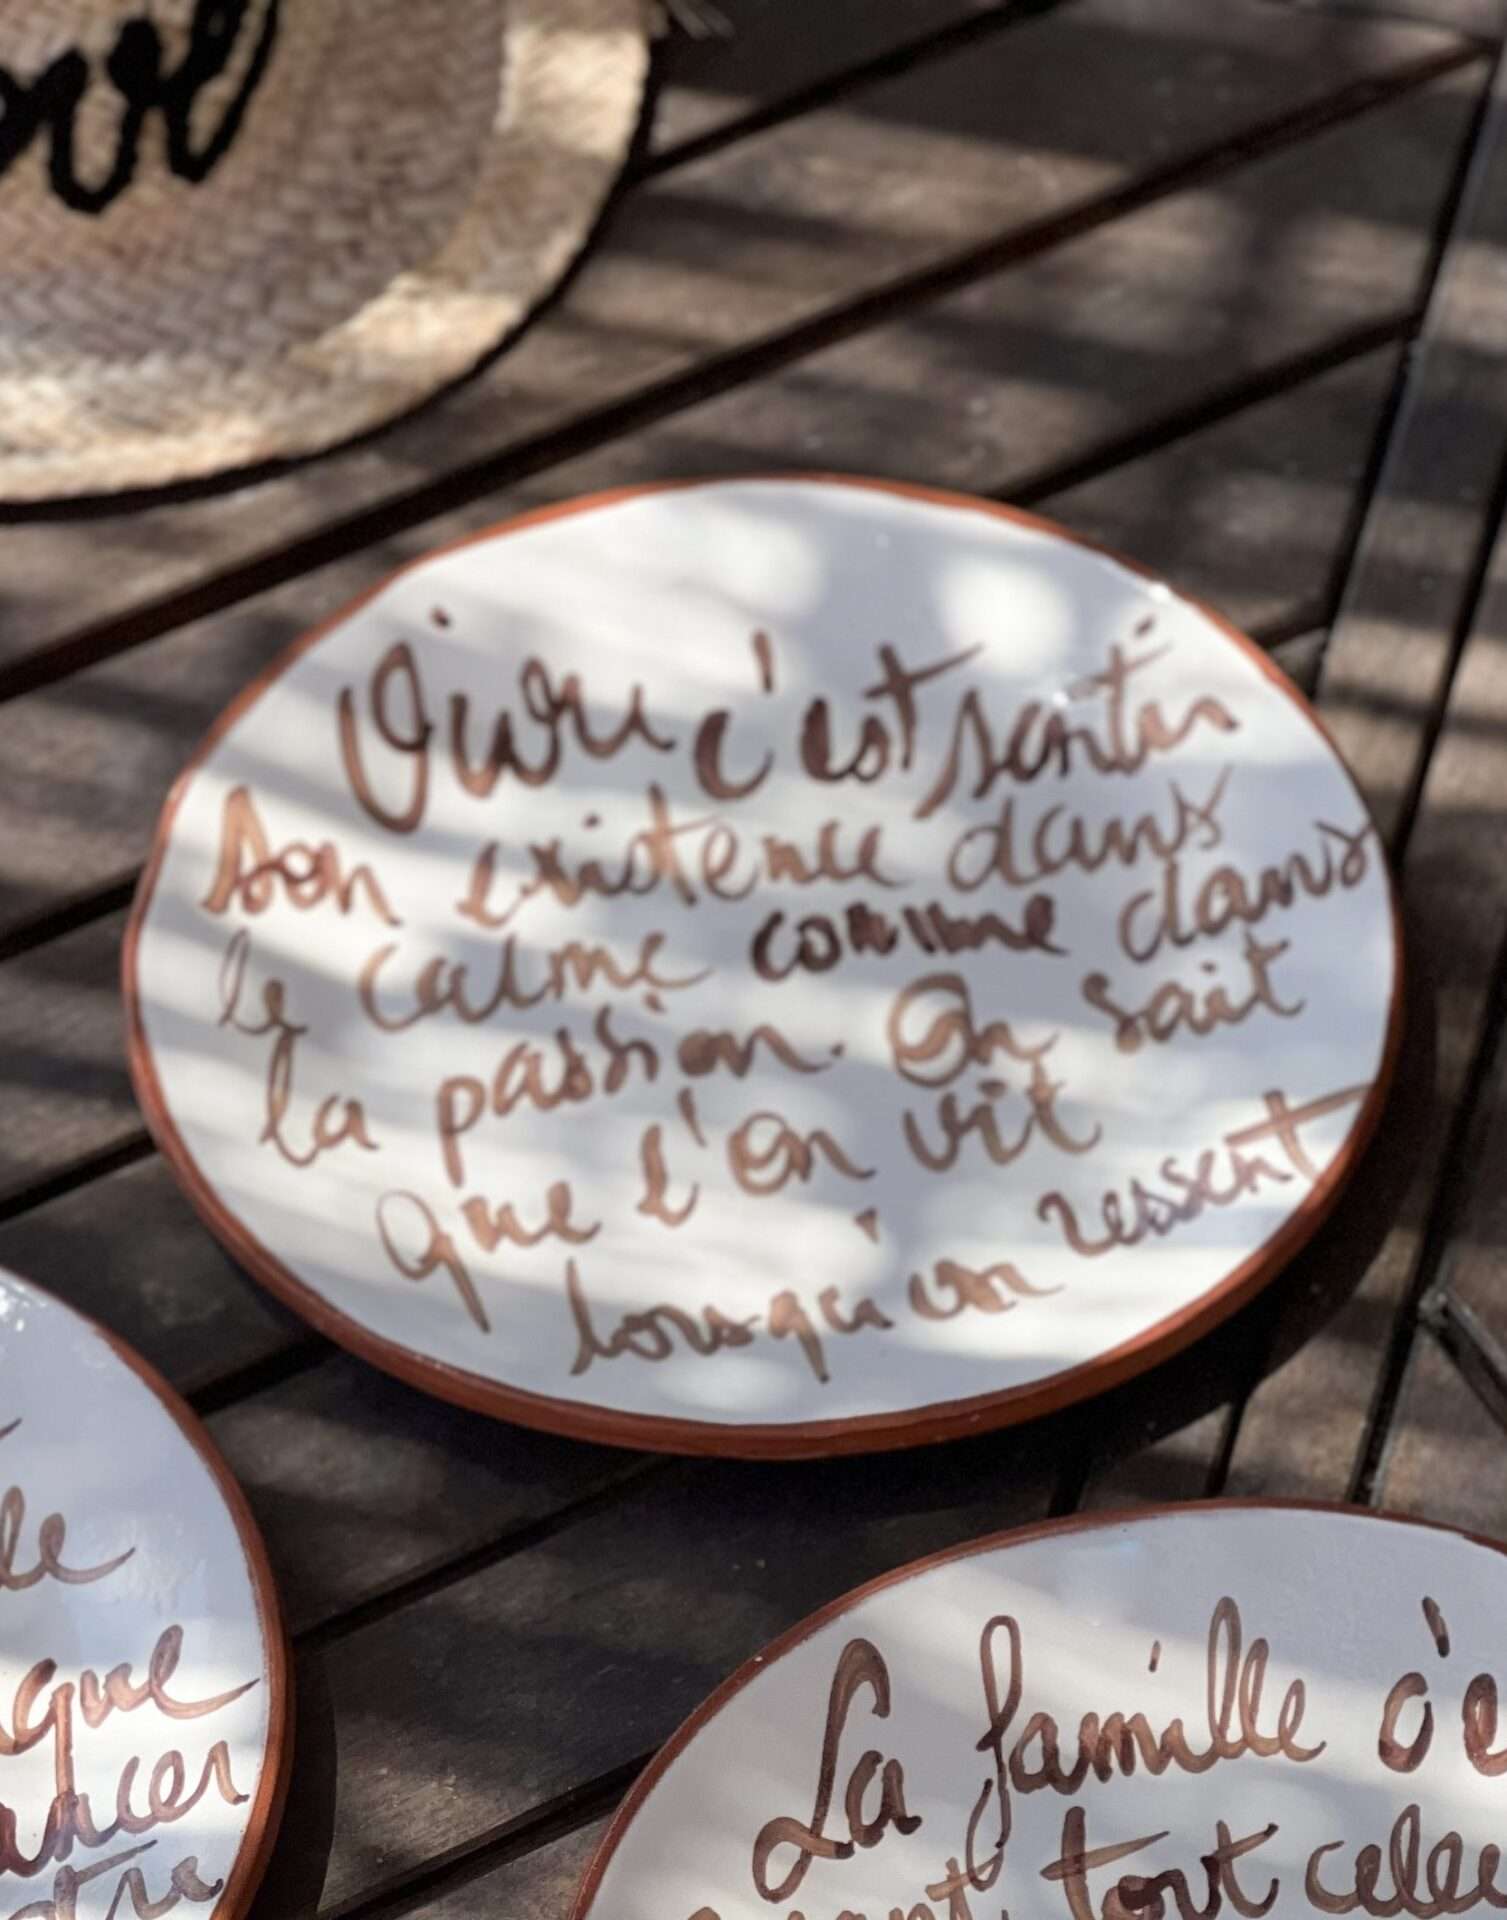 Vivre c'est sentir
son existence dans
le calme comme dans
la passion. On sait
que l'on vit
lorsqu'on ressent
La famille c'e
tout
que